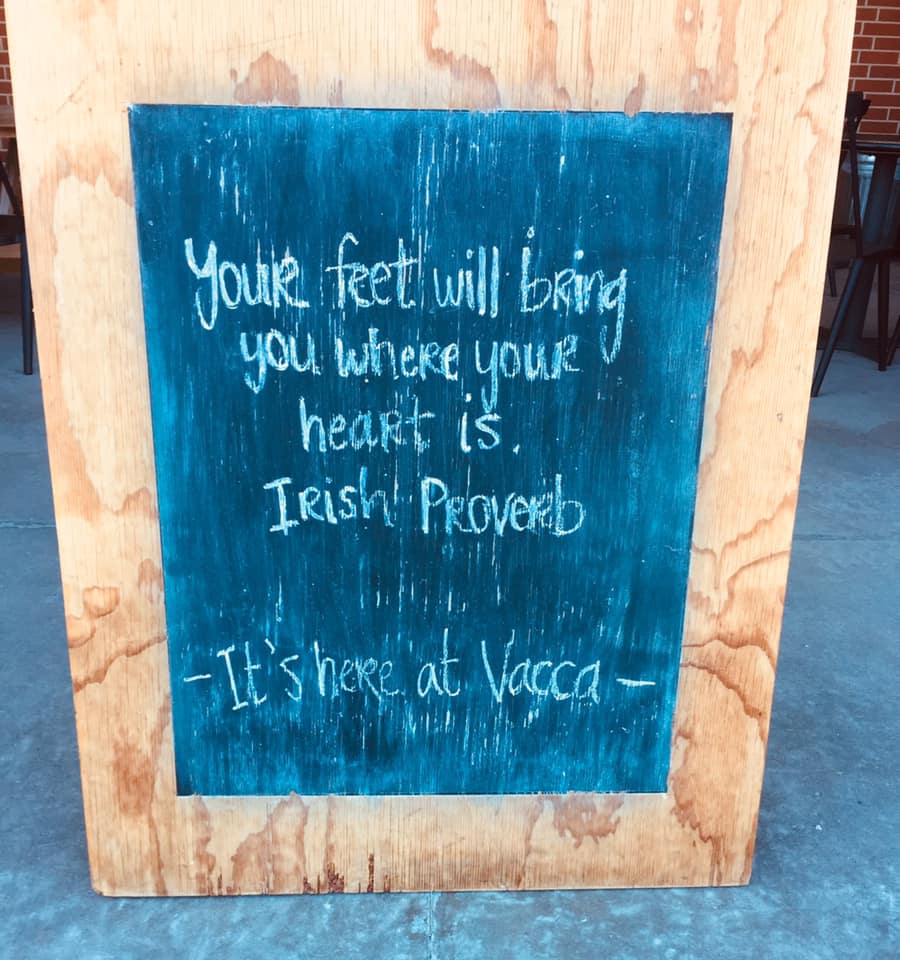 Your feet will bring
you where your
heart is.
Irish Proverb
- It's here at Vacca -